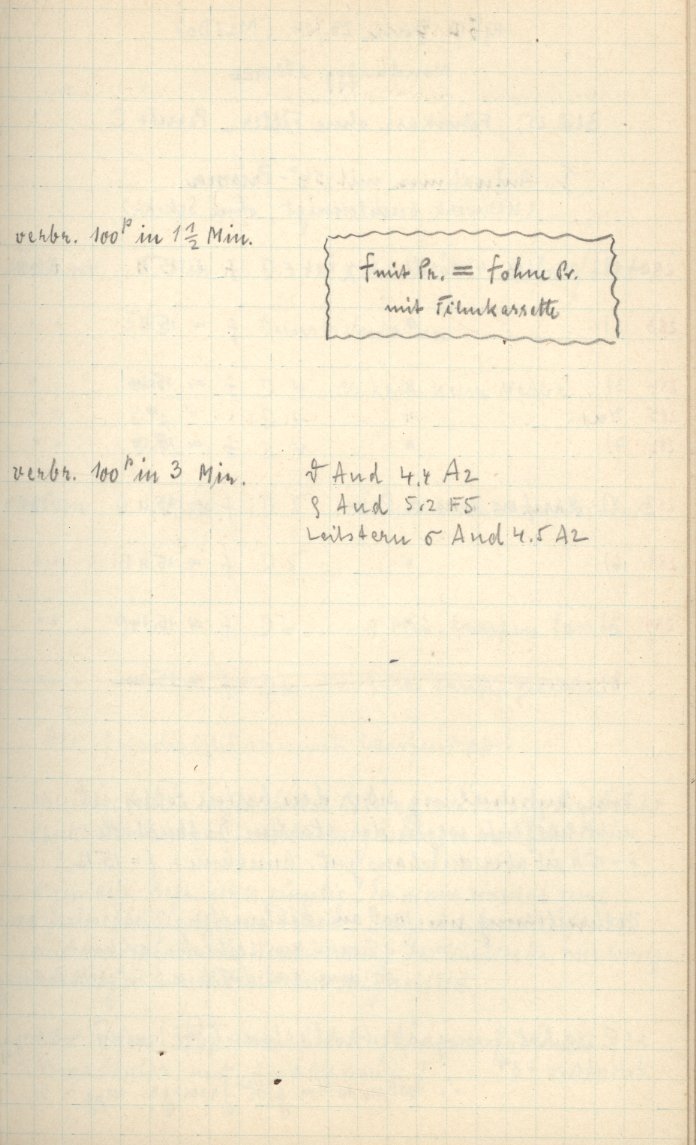 verbr. 100ᵖ in 1 ½ Min.
f mit Pr. = f ohne Pr.
mit Filmkassette
verbr. 100ᵖ in 3 Min.
ϑ And 4.4 A2
ρ And 5.2 F5
Leitstern σ And 4.5 A2